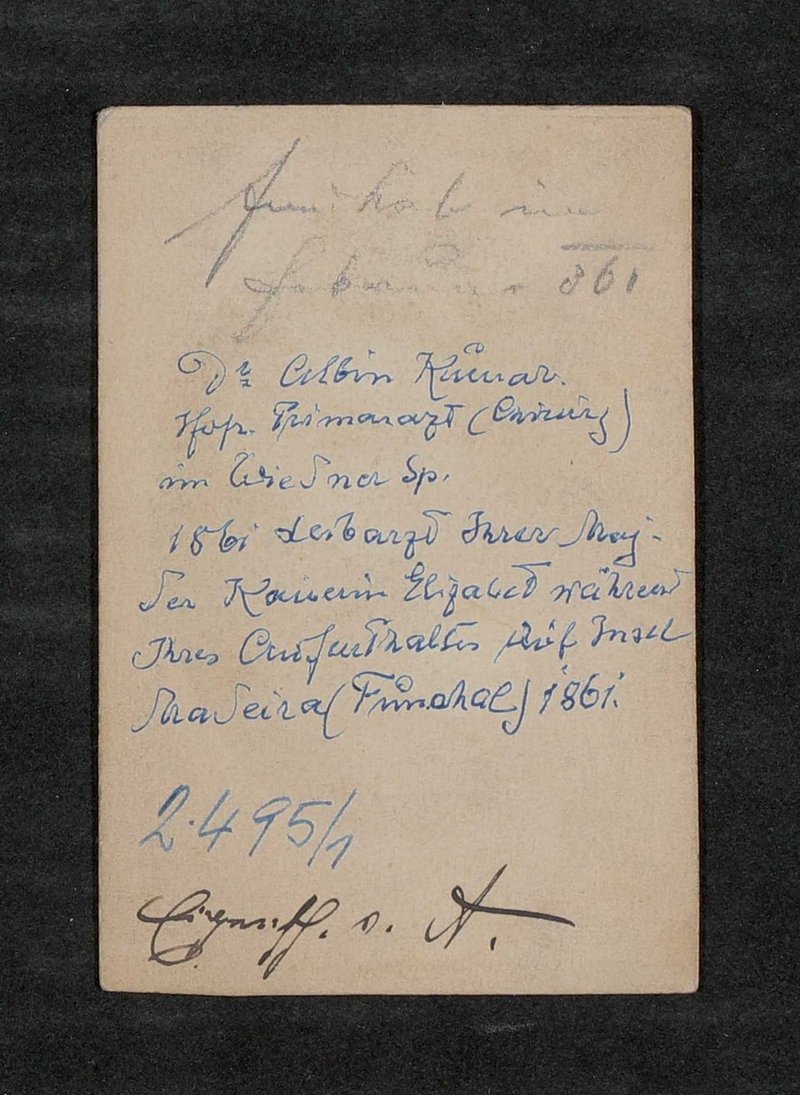 Funchal im
Februar 861
Dr Albin Kůmar.
Hofr. Primararzt (Chirurg)
im Wiedner Sp.
1861 Leibarzt Ihrer Maj.
der Kaiserin Elizabet während
Ihres Aufenthaltes auf Insel
Madeira (Fůnchal) 1861.
2.495/1
v. A.